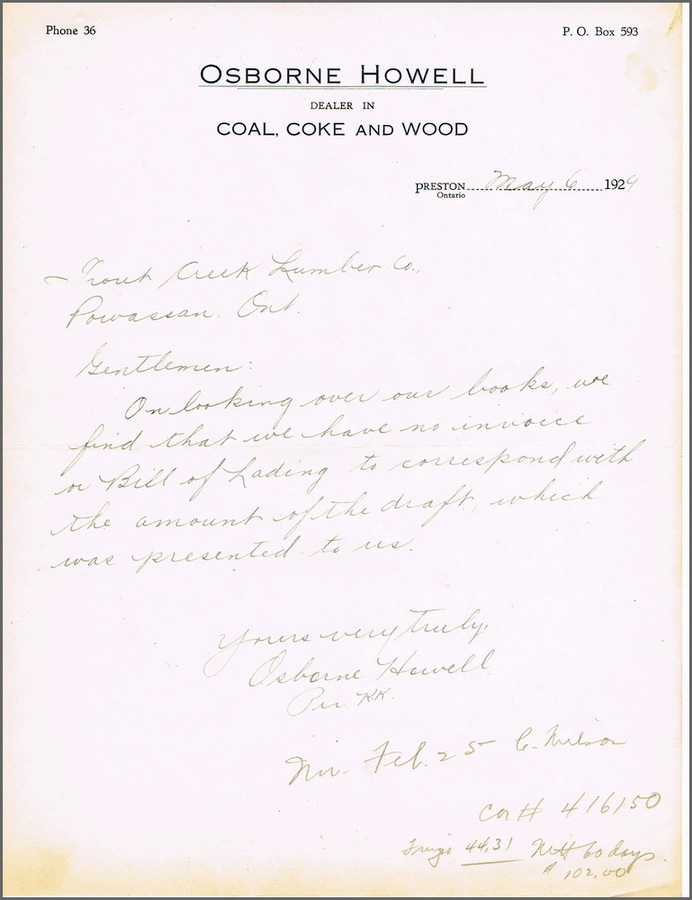 Phone 36
P. O. Box 593
OSBORNE HOWELL
DEALER IN
COAL, COKE AND WOOD
PRESTON May 6 1929
Ontario
Trout Creek Lumber Co.,
Powassan. Ont.
Gentlemen:
On looking over our books, we
find that we have no invoice
or Bill of Lading to correspond with
the amount of the draft, which
was presented to us.
Yours very truly,
Osborne Howell
Per KK.
Inv. Feb. 25 C. Nelson
Car # 416150
44.31 Nett 60 days.
$ 102.00